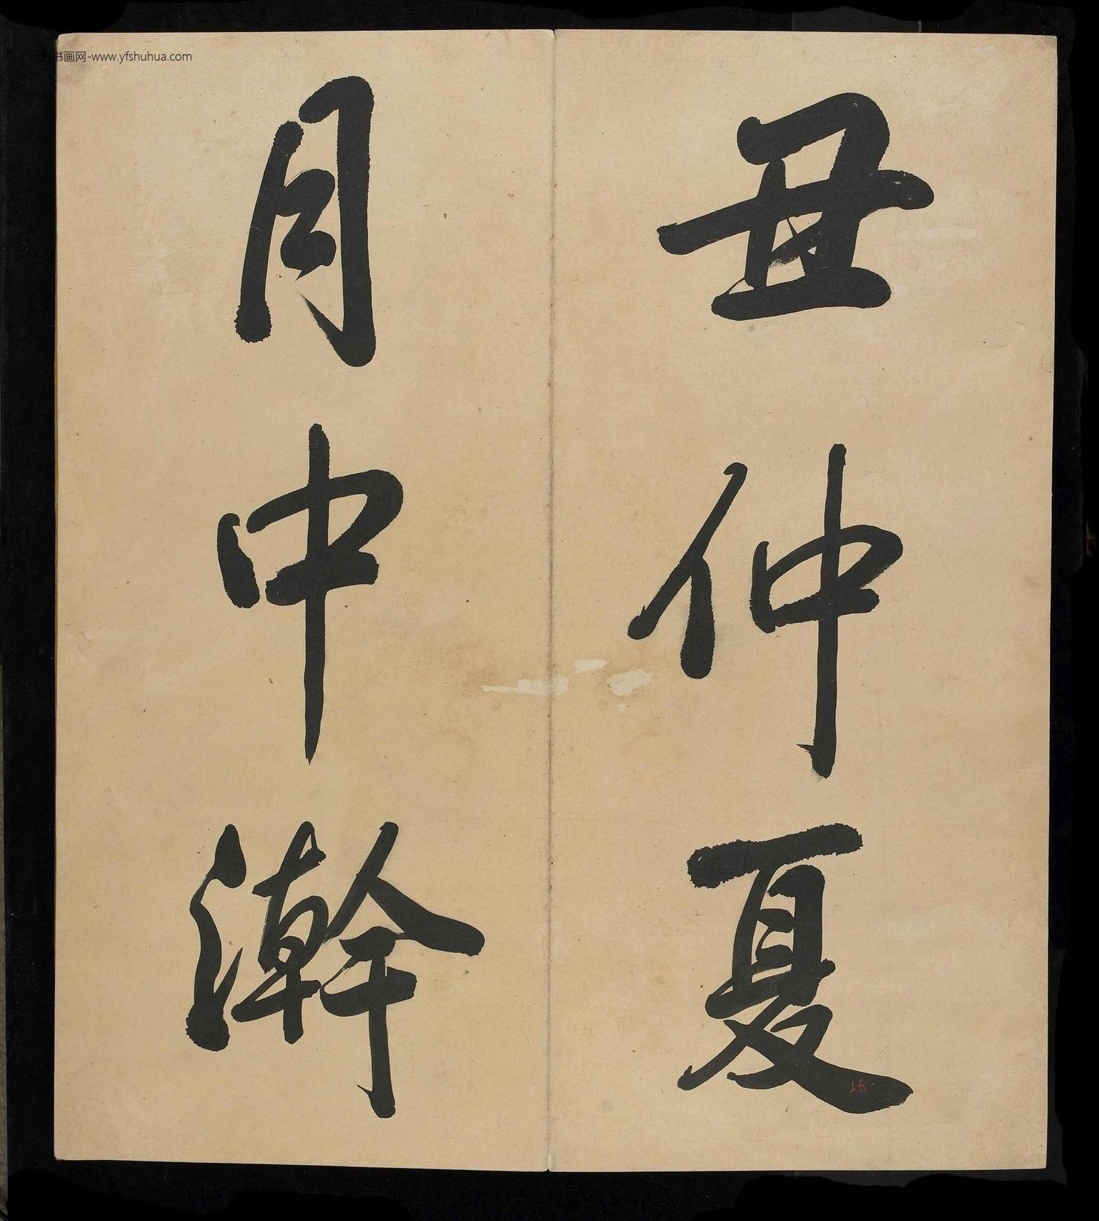 丑仲夏
月中澣
书画网-www.yfshuhua.com